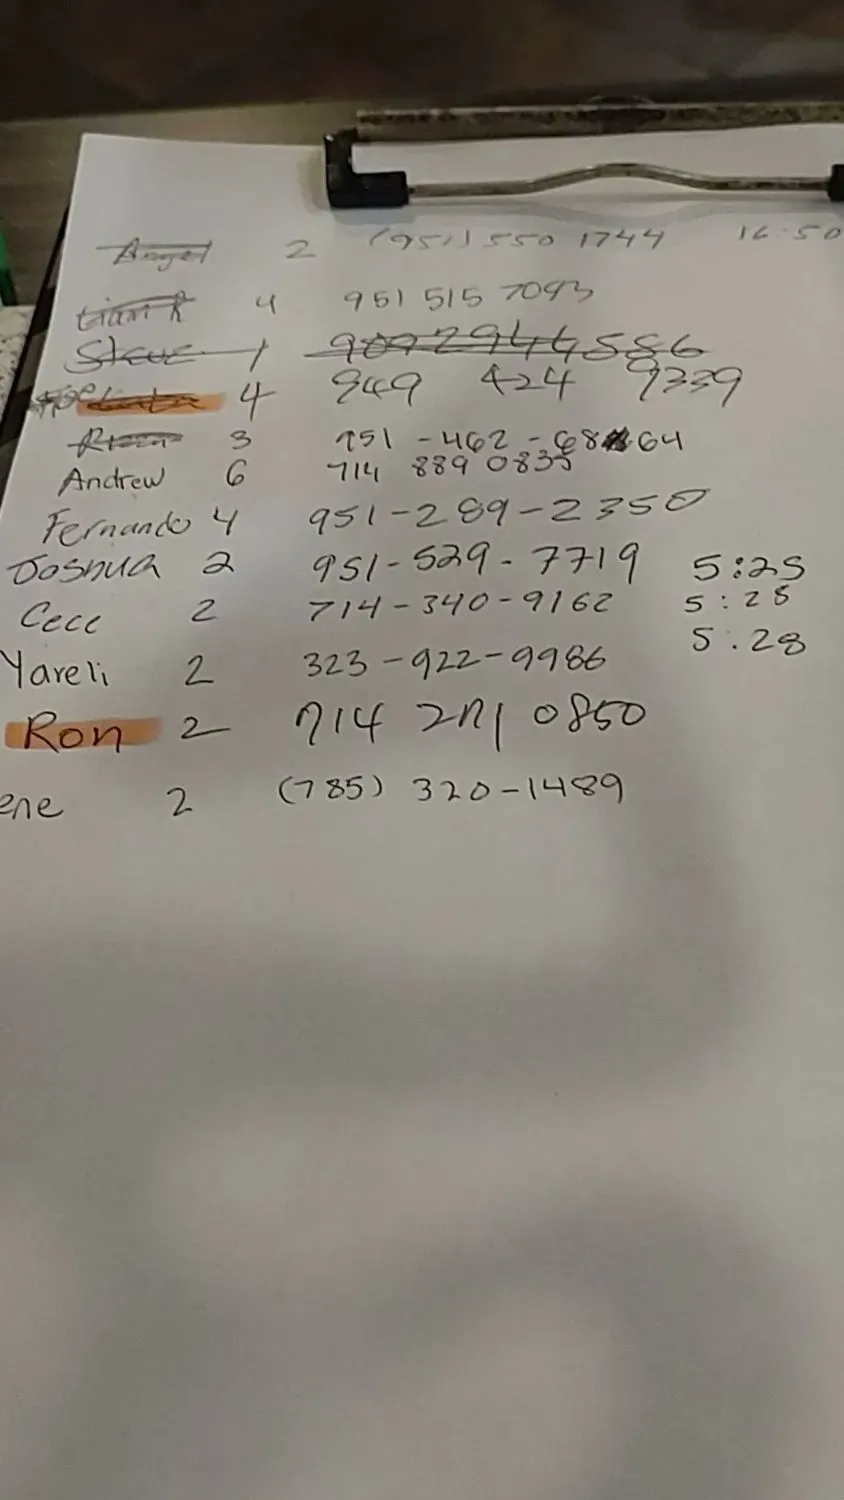 Angel 2 (951) 550 1744 16:50
4 951 515 7093
Steve 1 909 294 4586
4 949 424 9339
3 951-462-6864
Andrew 6 714 889 0835
Fernando 4 951-289-2350
Joshua 2 951-529-7719 5:25
Cece 2 714-340-9162 5:28
Yareli 2 323-922-9986 5:28
Ron 2 714 271 0850
ene 2 (785) 320-1489